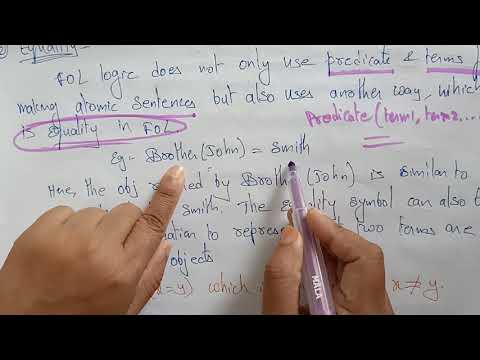 Equality-
FOL logic does not only use predicate & terms
making atomic sentences but also uses another way, which
is equality in FOL.
Predicate (term1, term2, ...
Eg- Brother (John) = Smith
Here, the obj by Broth (John) is similar to
Smith. The symbol can also
to represe two terms are
objects
=y) which x ≠ y.
MALA